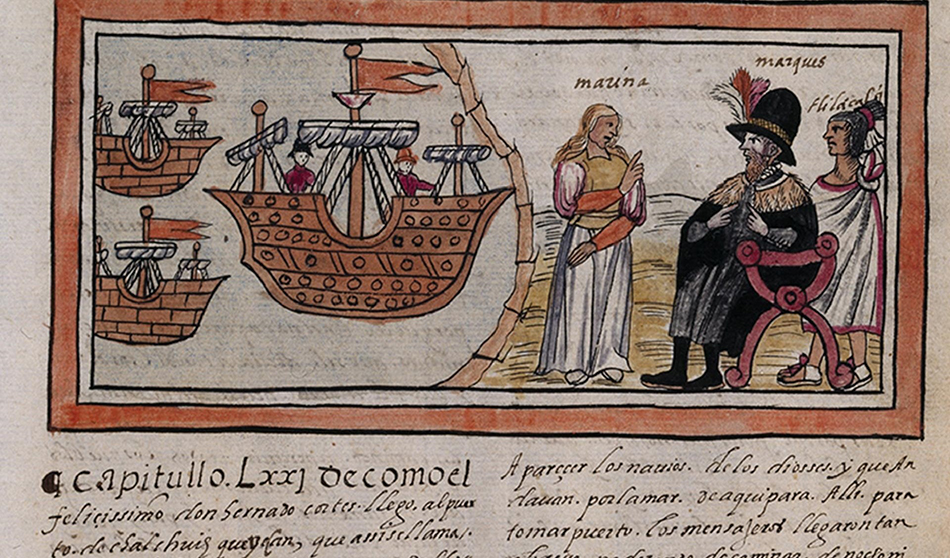 marina
marques
tlilācalqi
Capitullo. Lxxj de como el
feliçissimo don hernādo cortes. llego. al puer
to. de chalchuih queyecan, que ansi se llama.
A pareçer los nauios. de los diosses. y que An
dauan. por la mar. de aqui para. Alli. para
tomar puerto. los mensajeros llegaron tan